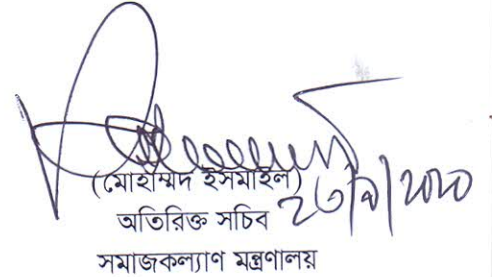 (মোহাম্মদ ইসমাইল)
অতিরিক্ত সচিব
সমাজকল্যাণ মন্ত্রণালয়